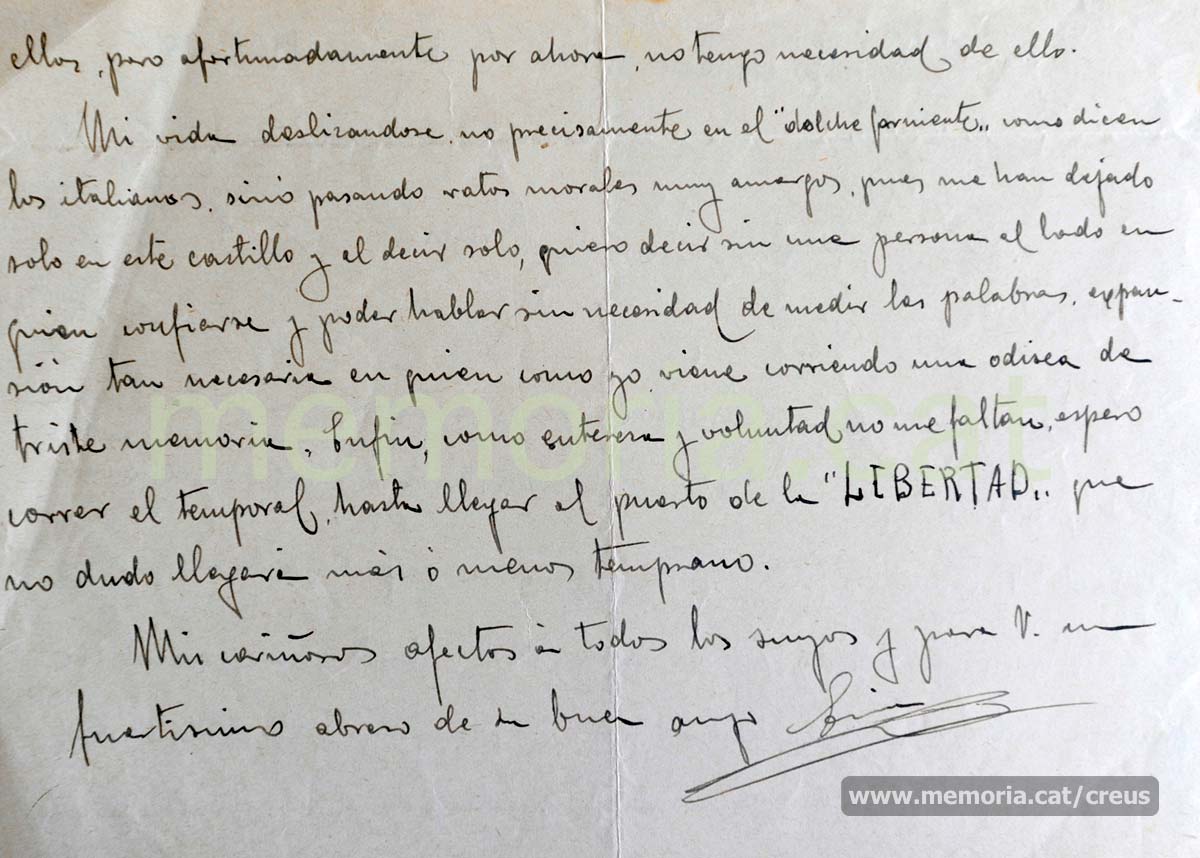 ellos, pero afortunadamente por ahora, no tengo necesidad de ello.
Mi vida deslizandose, no precisamente en el "dolche farniente" como dicen
los italianos, sinó pasando ratos morales muy amargos, pues me han dejado
solo en este castillo y al decir solo, quiero decir sin una persona al lado en
quien confiarse y poder hablar sin necesidad de medir las palabras, expan-
sión tan necesaria en quien como yo, viene corriendo una odisea de
triste memoria. Enfin, como entereza y voluntad no me faltan, espero
correr el temporal, hasta llegar al puerto de la "LIBERTAD" que
no dudo llegará más ó menos temprano.
Mis cariñosos afectos á todos los suyos y para V. un
fuertisimo abrazo de su buen amigo
memoria.cat
www.memoria.cat/creus